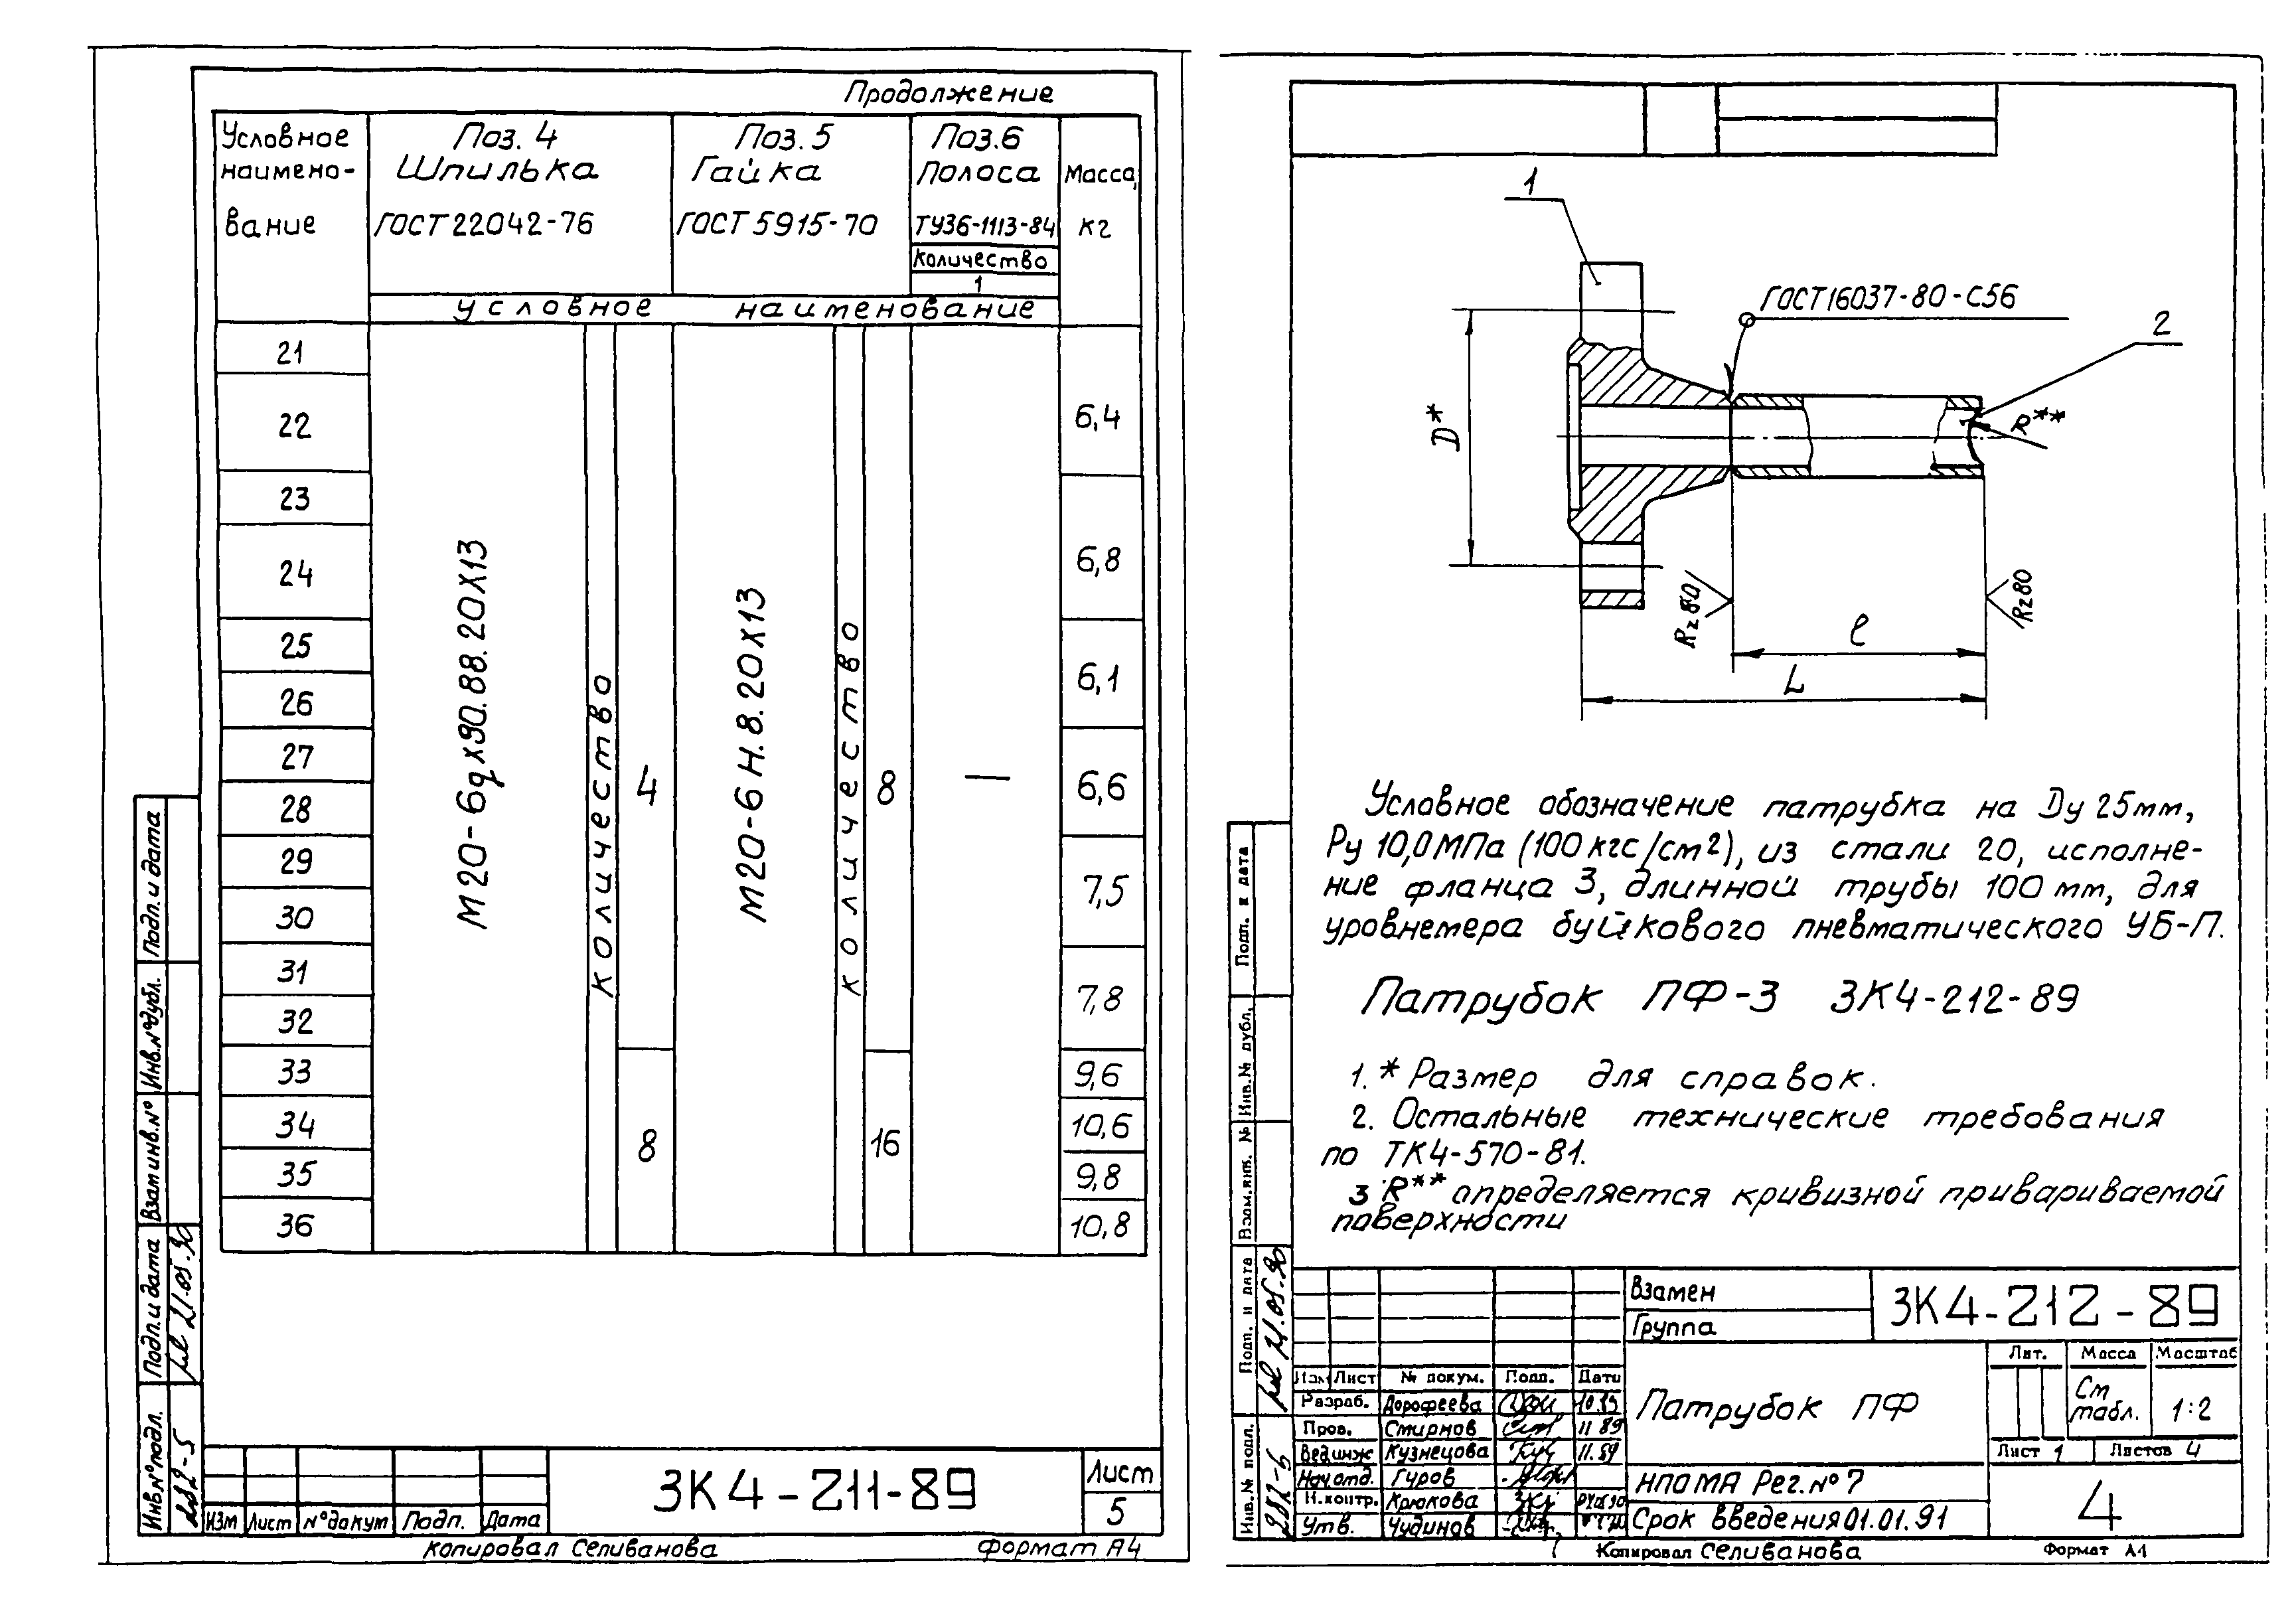 Продолжение
Условное наимено- вание
Поз. 4 Шпилька ГОСТ 22042-76
Поз. 5 Гайка ГОСТ 5915-70
Поз.6 Полоса ТУ36-1113-84
Количество
1
Масса, кг
условное наименование
21
22
23
24
25
26
27
28
29
30
31
32
33
34
35
36
М20-6gх90.88.20Х13
количество
4
8
М20-6Н.8.20Х13
количество
8
16
—
6,4
6,8
6,1
6,6
7,5
7,8
9,6
10,6
9,8
10,8
Подп. и дата
Инв.№дубл.
Взам инв.№
Подп. и дата
21.05.90
Инв.№подл.
282-5
Изм Лист №докум Подп. Дата
ЗК4-211-89
Лист
5
Копировал Селиванова
Формат А4
1
ГОСТ16037-80-С56
2
D*
R**
Rz80
Rz80
ℓ
L
Условное обозначение патрубка на Dу 25мм,
Ру 10,0МПа (100 кгс/см2), из стали 20, исполне-
ние фланца 3, длинной трубы 100 мм, для
уровнемера буйкового пневматического УБ-П.
Патрубок ПФ-3 ЗК4-212-89
1. * Размер для справок.
2. Остальные технические требования
по ТК4-570-81.
3 R** определяется кривизной привариваемой
поверхности
Подп. и дата
Инв.№ дубл.
Взам.инв. №
Подп. и дата
21.05.90
Инв.№ подл.
282-5
Взамен
Группа
ЗК4-212-89
Изм Лист № докум. Подп. Дата
Разраб. Дорофеева 10.89
Пров. Смирнов 11 89
Вед.инж Кузнецова 11.89
Нач.отд. Гуров
Н.контр. Крюкова
Утв. Чудинов
Патрубок ПФ
Лит. Масса Масштаб
См табл. 1:2
Лист 1 Листов 4
НПО МА Рег.№ 7
Срок введения 01.01.91
4
Копировал Селиванова
Формат А4